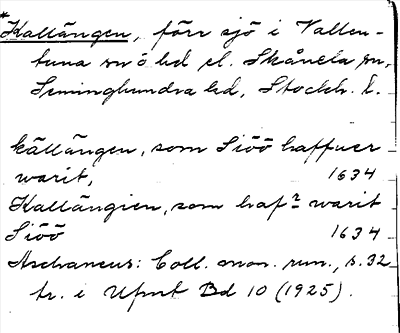 *Kallängen, förr sjö i Vallen-
tuna sn o hd el. Skånela sn,
Seminghundra hd, Stockh. l.
källängen, som Siöö haffuer
warit, 1634
Kallängien, som haf? warit
Siöö 1634
Aschaneus: Coll. mon. run., s. 32
tr. i Upmt Bd 10 (1925).